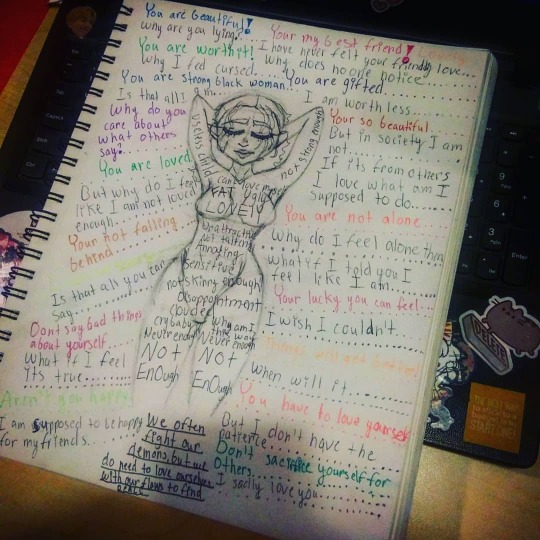 You are beautiful!
why are you lying?
You are worth it!
Why I feel cursed
You are strong black woman!
Is that all I am
Why do you
care about
what others
say?
You are loved
But why do I feel
like I am not loved
enough
Your not falling
behind
Is that all you can
say
Dont say bad things
about yourself
What if I feel
its true
Aren't you happy
I am supposed to be happy
for my friends
Your my best friend!
I have never felt your friendly love
Why does no one notice
You are gifted
I am worthless
Your so beautiful
But in society I am
not
If its from others
I love what am I
supposed to do
You are not alone
Why do I feel alone then
what if I told you I
feel like I am
Your lucky you can feel
I wish I couldn't
Things will get better
When will it
You have to love yourself
But I don't have the
patience
Don't sacrifice yourself for
others
I sadly love you
useless child
not strong enough
can't love myself
FAT Ugly
LONELY
Unattractive
Not talented
Annoying
Sensitive
not skinny enough
disappointment
crybaby
Why am I
this way
Never enough
Never enough
Not
Enough
Not
Enough
We often
fight our
demons, but we
do need to love ourselves
with our flaws to find
peace
DELETE